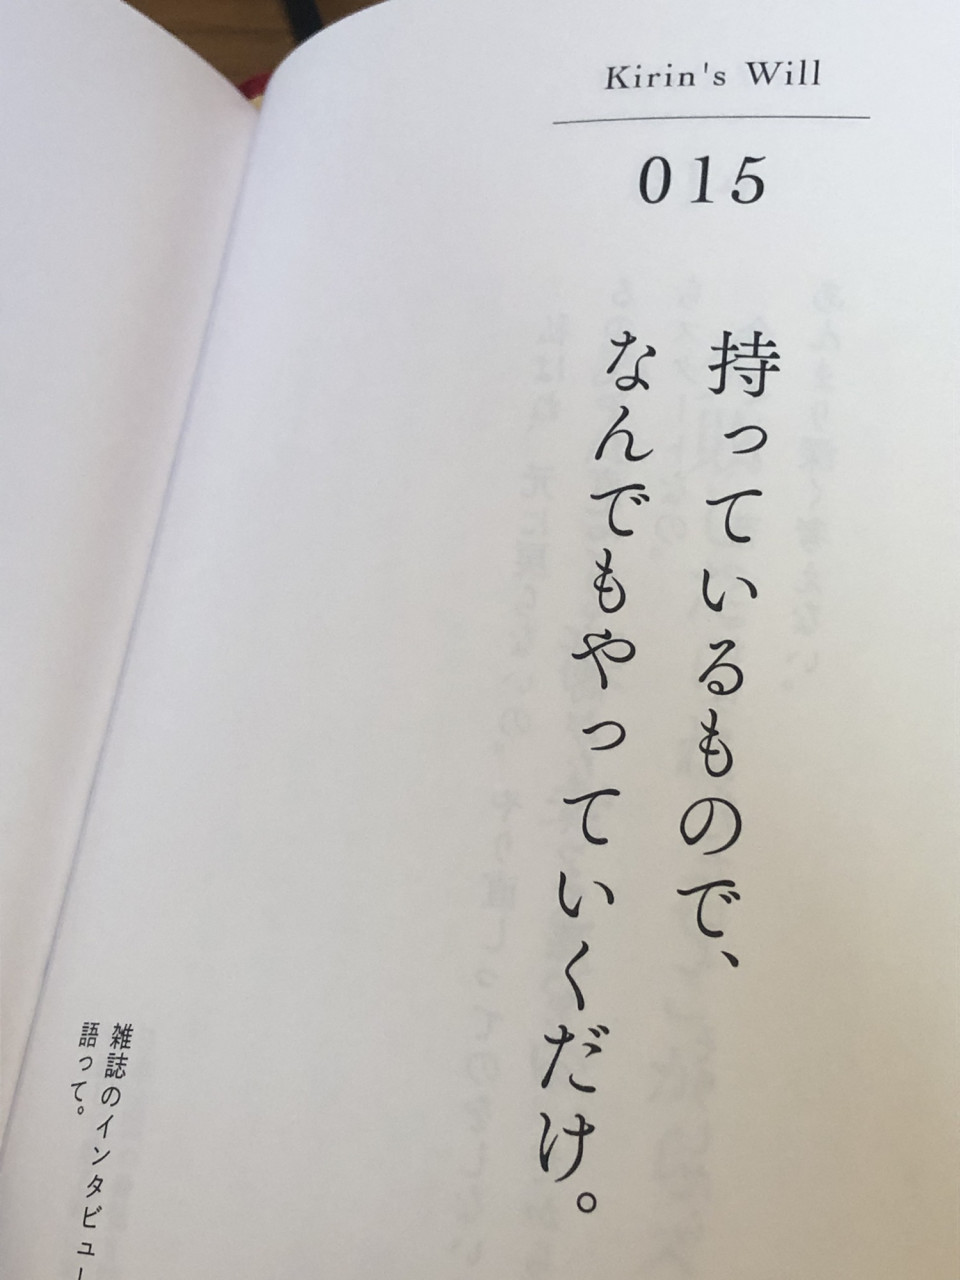 Kirin's Will
015
持っているもので、
なんでもやっていくだけ。
雑誌のインタビュー
語って。